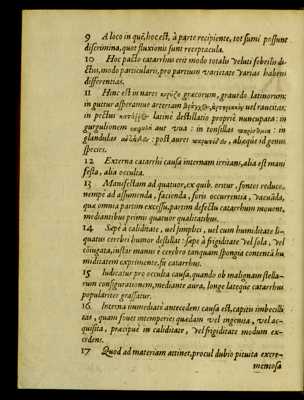 9 A loco in quē, hoc est, à parte recipiente, tot sumi possunt
discrimina, quot fluxionis sunt receptacula.
10 Hoc pacto catarrhus erit modo totalis velut febrilis di-
ctus, modo particularis, pro partium varietate varias habens
differentias.
11 Hinc est in nares græcorum, grauedo latinorum:
in guttur asperamue arteriam vel raucitas:
in pectus latinè destillatio propriè nuncupata: in
gurgulionem aut vua: in tonsillas in
glandulas post aures alięque id genus
species.
12 Externa catarrhi causa internam irritans, alia est mani
festa, alia occulta.
13 Manifestam ad quatuor, ex quib. oritur, fontes reduco,
nempè ad assumenda, facienda, foris occurrentia, vacuāda,
quæ omnia partim excessu, partim defectu catarrhum mouent,
mediantibus primis quatuor qualitatibus.
14 Sæpè à caliditate, vel simplici, vel cum humiditate li-
quatus cerebri humor destillat: sæpè à frigiditate vel sola, vel
cōiugata, instar manus è cerebro tanquam spongia contentā hu
miditatem exprimente, fit catarrhus.
15 Iudicatur pro occulta causa, quando ob malignam stella-
rum configurationem, mediante aura, longè lateque catarrhus
populariter grassatur.
16 Interna immediati antecedens causa est, capitis imbecilli
tas, quam fouet intemperies quædam vel ingenita, vel ac-
quisita, præcipuè in caliditate, vel frigiditate modum ex-
cedens.
17 Quod ad materiam attinet, procul dubio pituita excre-
mentosa